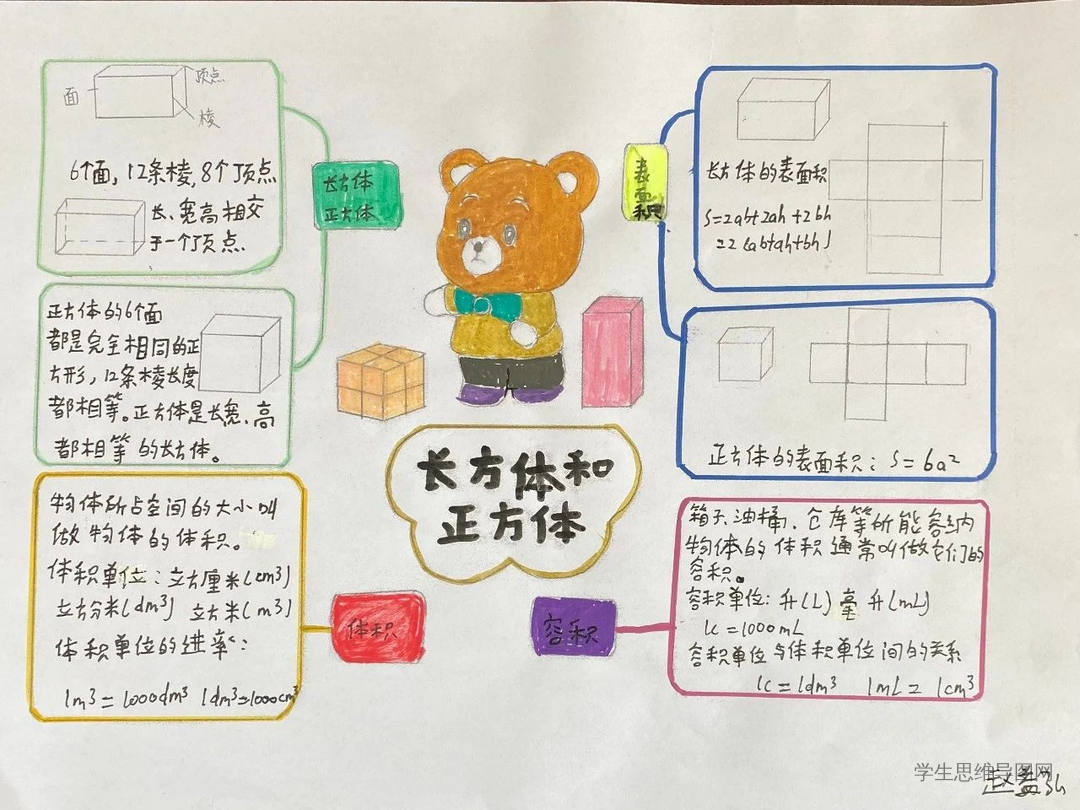 面
顶点
棱
6个面，12条棱，8个顶点
长、宽高相交
于一个顶点
长方体
正方体
正方体的6个面
都是完全相同的正
方形，12条棱长度
都相等。正方体是长宽、高
都相等的长方体。
物体所占空间的大小叫
做物体的体积。
体积单位：立方厘米(cm³)
立方分米(dm³) 立方米(m³)
体积单位的进率：
1m³=1000dm³ 1dm³=1000cm³
体积
长方体和
正方体
表
面
积
长方体的表面积
S=2ab+2ah+2bh
=2(ab+ah+bh)
正方体的表面积：S=6a²
箱子、油桶、仓库等所能容纳
物体的体积通常叫做它们的
容积。
容积单位：升(L) 毫升(mL)
1L=1000mL
容积单位与体积单位间的关系
1L=1dm³ 1mL=1cm³
容积
学生思维导图网